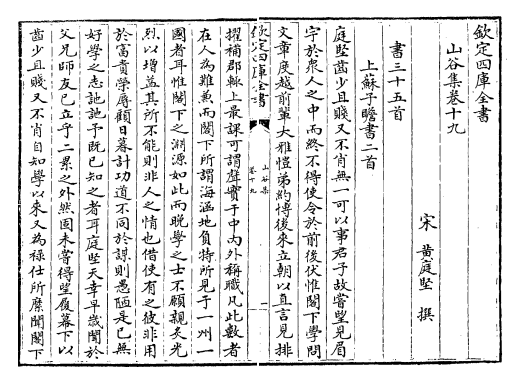 欽定四庫全書
山谷集卷十九
宋 黃庭堅 撰
書三十五首
上蘇子瞻書二首
庭堅齒少且賤又不肖無一可以事君子故嘗望見眉
宇於衆人之中而終不得使令於前後伏惟閣下學問
文章度越前輩大雅愷弟約博後來立朝以直言見排
欽定四庫全書
山谷集
卷十九
一
擢補郡輒上最課可謂聲實于中内外稱職凡此數者
在人為難兼而閣下所謂海涵地負特所見于一州一
國者耳惟閣下之淵源如此而晚學之士不願親炙光
烈以增益其所不能則非人之情也借使有之彼非用
於富貴榮辱顧日暮計功道不同於謀則愚陋是已無
好學之志訑訑予既已知之者耳庭堅天幸早歲聞於
父兄師友已立乎二累之外然固未嘗得望履幕下以
齒少且賤又不肖自知學以來又為祿仕所縻聞閣下